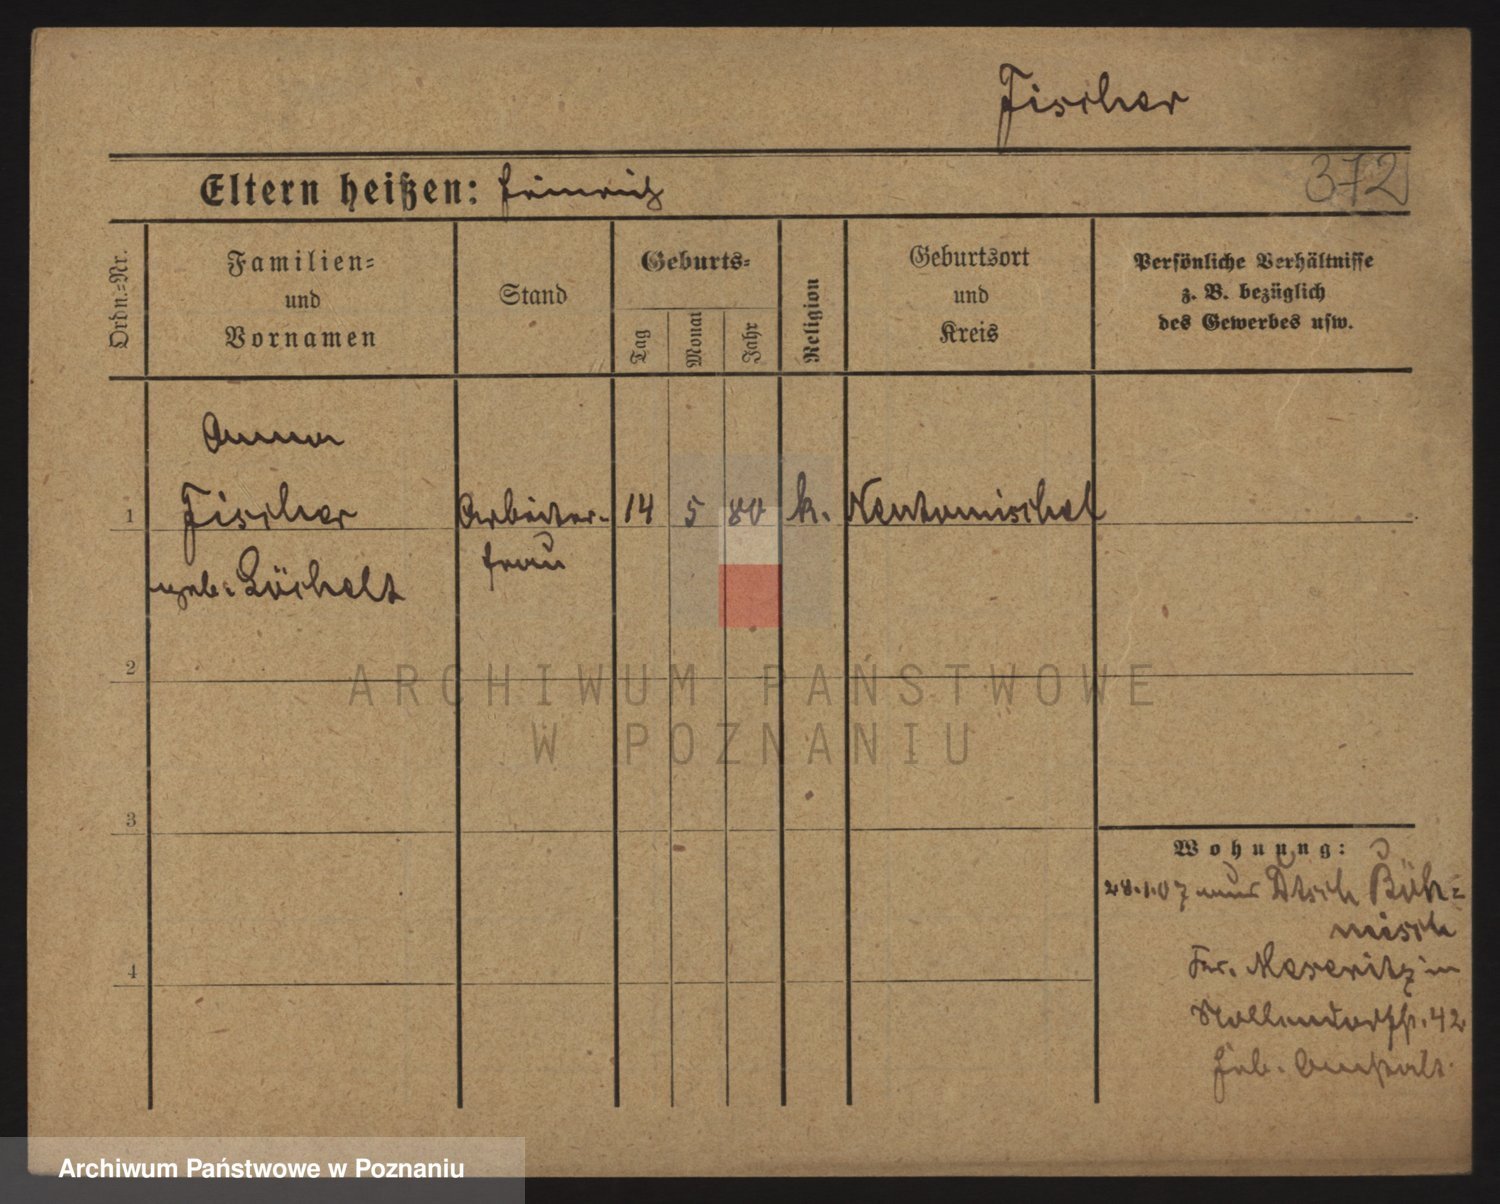 Fischer
Eltern heißen: Heinrich
372
Ordn.=Nr.
Familien=
und
Vornamen
Stand
Geburts=
Tag
Monat
Jahr
Religion
Geburtsort
und
Kreis
Persönliche Verhältnisse
z. B. bezüglich
des Gewerbes usw.
Anna
1 Fischer Arbeiter- 14 5 80 k. Neutomischel
frau
geb.
2
3
4
Wohnung:
28.1.07 aus Dtsch Böh=
misch
Kr. Meseritz in
Nollendorfstr. 42
Heb. Anstalt
ARCHIWUM PAŃSTWOWE
W POZNANIU
Archiwum Państwowe w Poznaniu